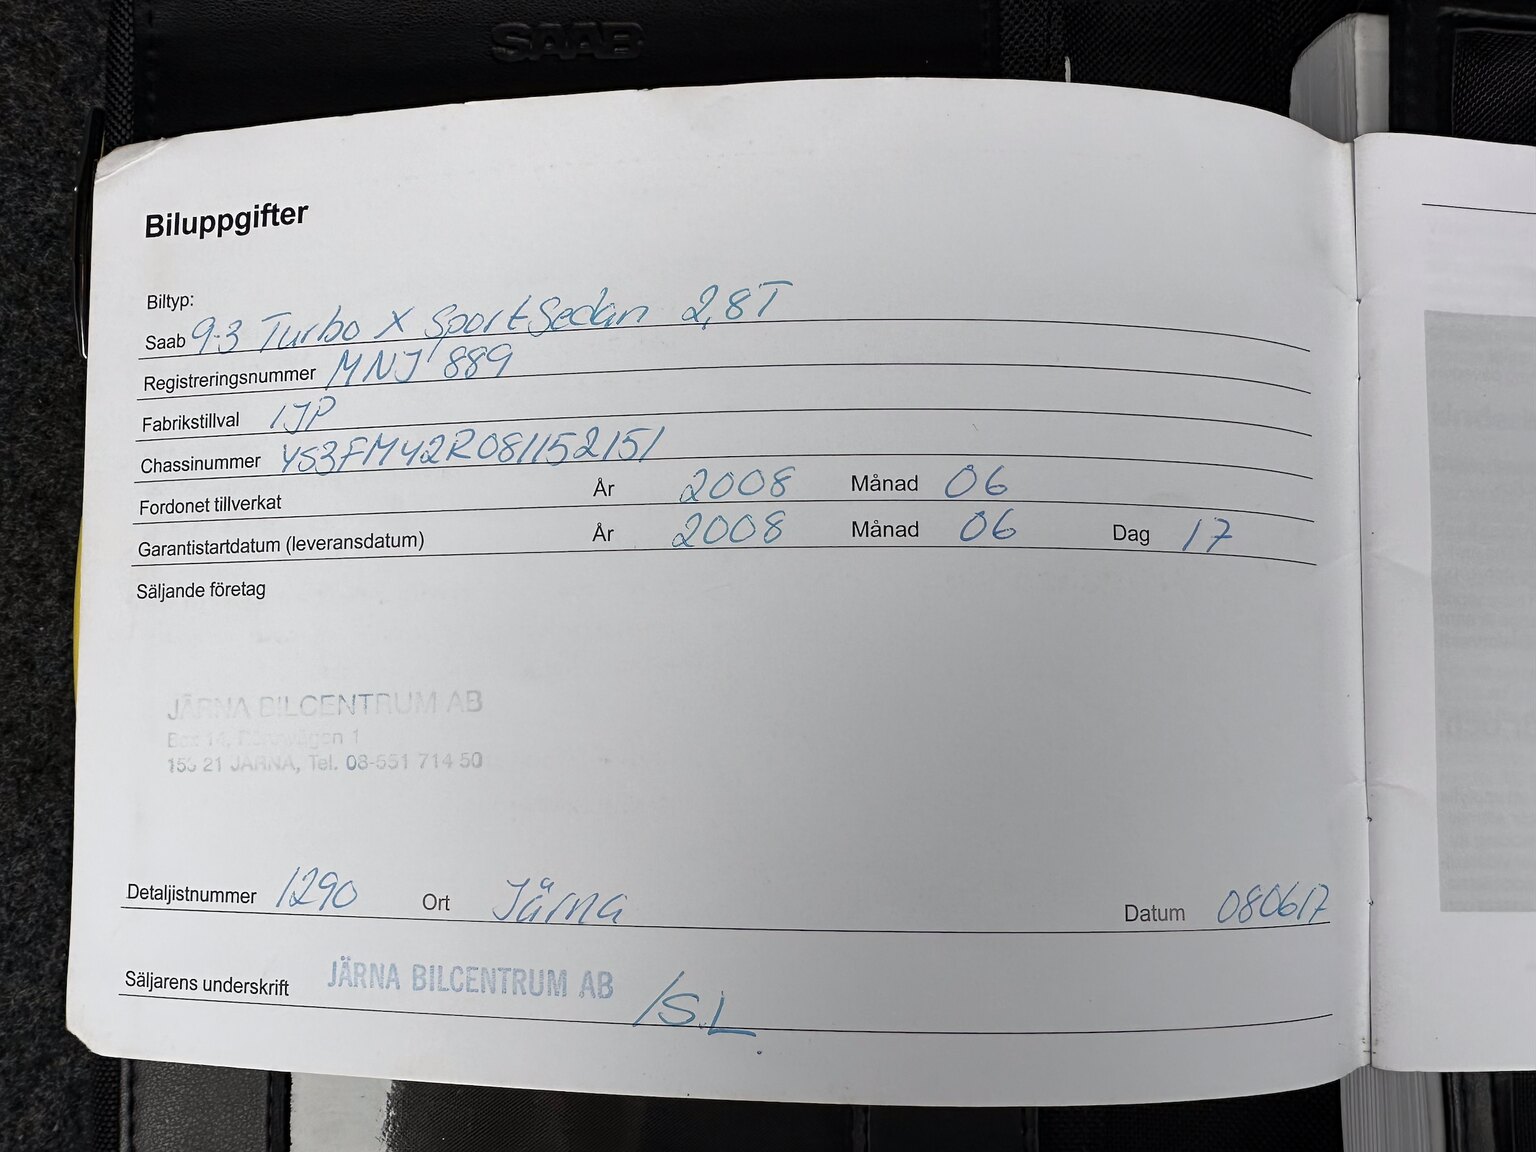 SAAB
Biluppgifter
Biltyp:
Saab 9-3 Turbo X SportSedan 2,8T
Registreringsnummer MNJ 889
Fabrikstillval IJP
Chassinummer YS3FM42R081152151
Fordonet tillverkat År 2008 Månad 06
Garantistartdatum (leveransdatum) År 2008 Månad 06 Dag 17
Säljande företag
JÄRNA BILCENTRUM AB
Box 14, 1
153 21 JÄRNA, Tel. 08-551 714 50
Detaljistnummer 1290 Ort Järna Datum 080617
Säljarens underskrift JÄRNA BILCENTRUM AB /S.L